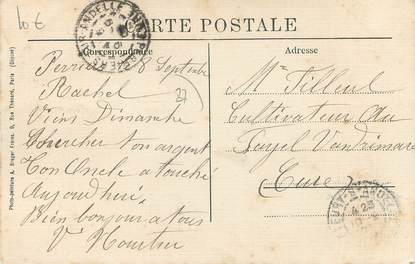 10 €
CARTE POSTALE
Correspondance
Adresse
Perriers 8 Septembre
Rachel
Viens Dimanche
Chercher ton argent
Ton Oncle a touché
Aujourd'hui.
Bien bonjour a tous
Vé Hourtier
27
Mr Tilleul
Cultivateur Au
Fayel Vandrimare
Eure
Photo-peinture A. Breger Frères, 9, Rue Thénard, Paris (Cliché)